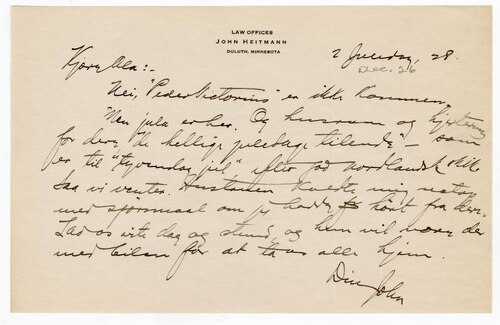 LAW OFFICES
JOHN HEITMANN
DULUTH, MINNESOTA
2 Juledag, 28.
Dec. 26
Kjære Ola:-
Nei, "Peder Victorious" er ikke kommen.
Men jula er her. Og husrum og hjerterum
for dere, "de hellige juledage tilende" – som
er til "tyvendag jul" efter god nordlandsk skik.
Saa vi venter. Hustruen mig
med spørsmaal om jeg hadde hørt fra dere.
Lad os vite dag og stund, og hun vil møte dere
med bilen for at ta os alle hjem.
Din John